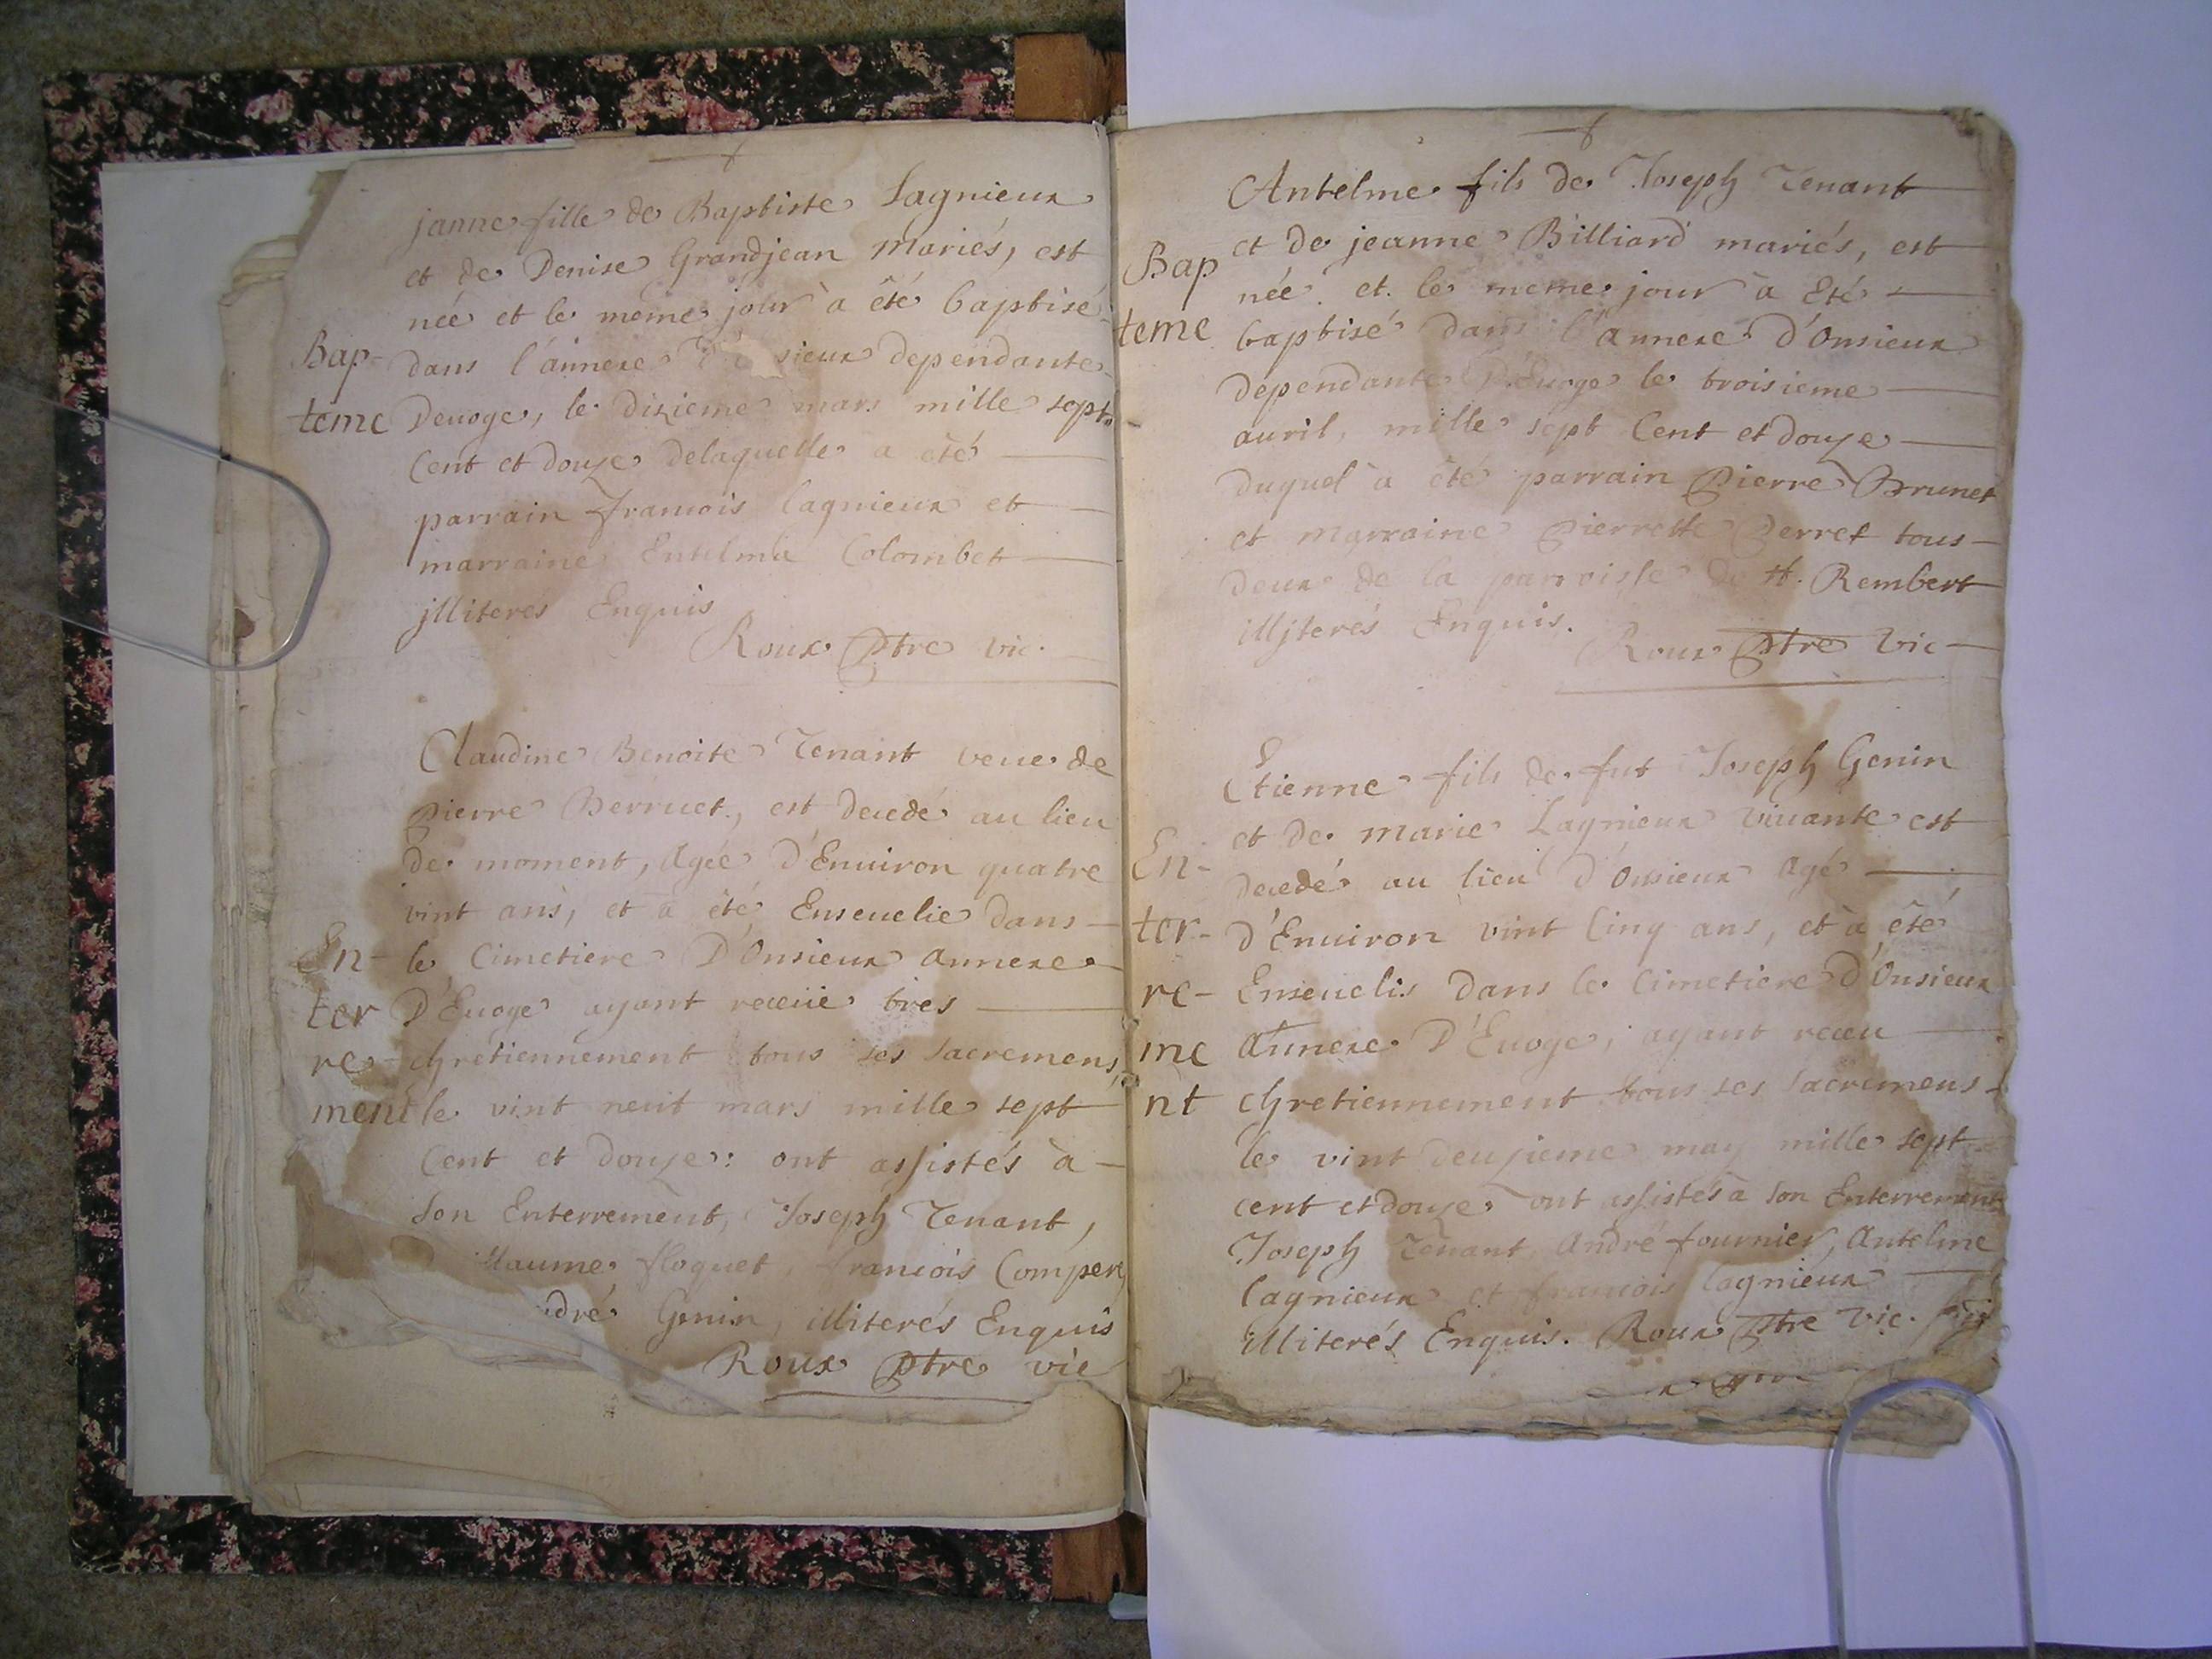 janne fille de Baptiste Lagnieux
et de Denise Grandjean mariés, est
née et le même jour à été baptisé
Bap- dans l'annexe d'O sieux dependante
teme Deuoge, le dixieme mars mille sept
Cent et douze delaquelle a été
parrain francois lagnieux et
marraine Entelma Colombet
jlliterés Enquis
Roux Ptre vic.
Claudine Benoite Tenant veue de
Pierre Perruct, est decedé au lieu
de moment, Agée d'Enuiron quatre
vint ans, et à été Enseuelie dans
En- le Cimetiere D'Onsieux annexe
ter D'Euoge ayant receüe tres
re- chretiennement tous ses sacremens
ment le vint neuf mars mille sept
Cent et douze: ont assistés à
Son Enterrement, Joseph Tenant,
llaume floquet, francois Compere
ndré Genin, illiterés Enquis
Roux Ptre vic
Antelme fils de Joseph Tenant
Bap et de jeanne Billiard mariés, est
née et le meme jour à Eté
teme baptisé dans l'annexe d'Onsieux
dependante D'Euoge le troisieme
auril, mille sept Cent et douze
duquel à été parrain Pierre Brunet
et marraine Pierrette Perret tous
deux de la parroisse de st. Rembert
illjterés Enquis.
Roux Ptre Vic
Etienne fils de fut Joseph Genin
et de marie Lagnieux viuante est
En- decedé au lieu d'Onsieux Agé
ter- d'Enuiron vint Cinq ans, et à été
re- Enseuelis dans le Cimetiere d'Onsieux
me Annexe D'Euoge, ayant receu
nt chretiennement tous ses sacremens
le vint deuzieme may mille sept
cent et douze ont assistés à Son Enterrement
Joseph Tenant André fournier, Antelme
lagnieux et francois lagnieux
illiterés Enquis. Roux Ptre Vic.